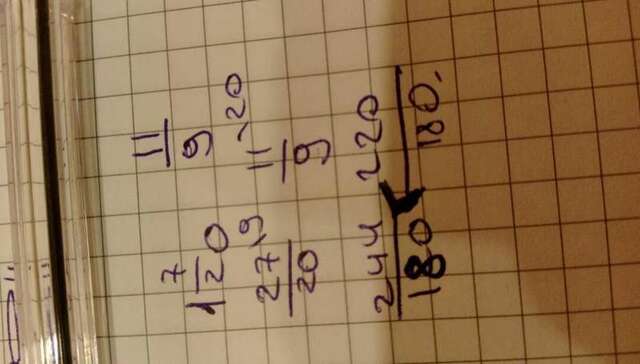 1 7/20 11/9
27/20 ,9 11/9 -20
244/180 < 220/180.